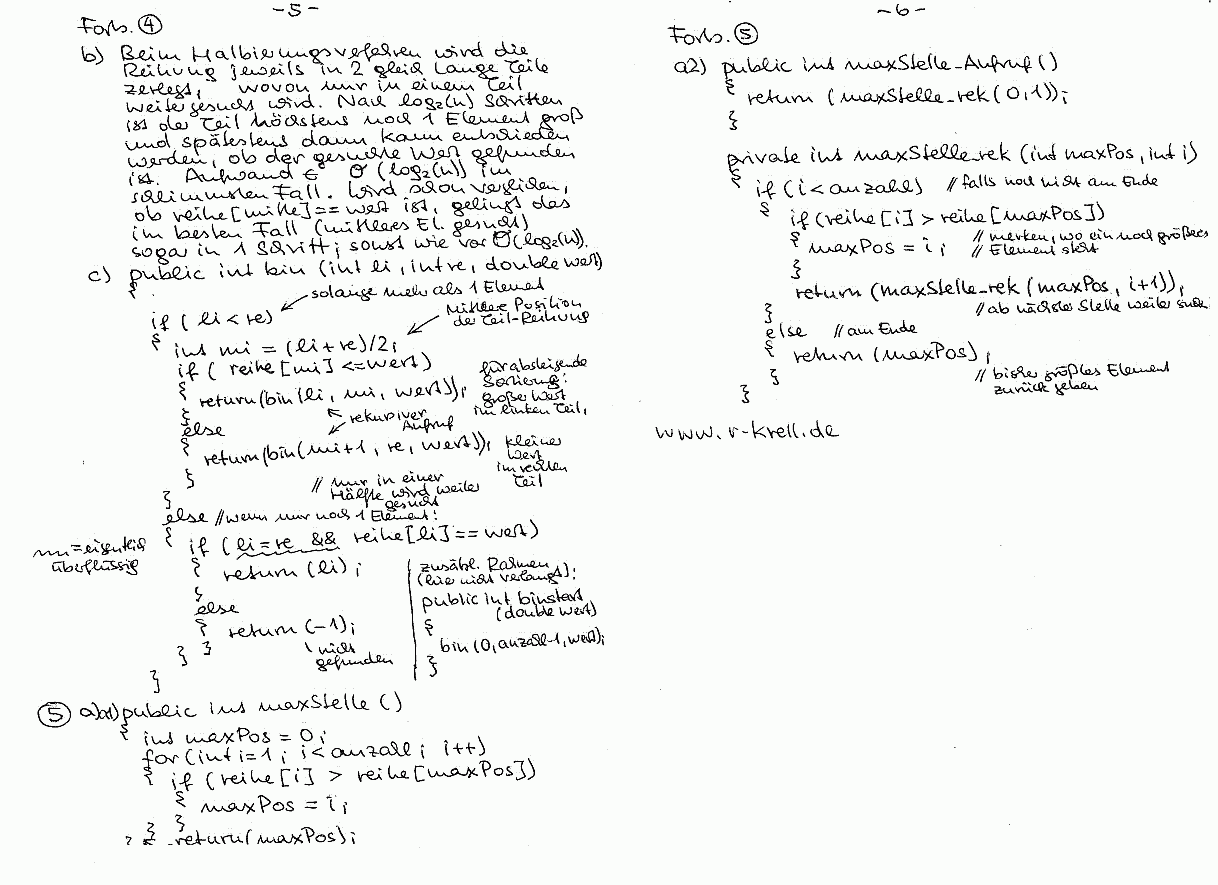 -5-
Forts. ④
b) Beim Halbierungsverfahren wird die
Reihung jeweils in 2 gleich lange Teile
zerlegt, wovon nur in einem Teil
weitergesucht wird. Nach log₂(n) Schritten
ist der Teil höchstens noch 1 Element groß
und spätestens dann kann entschieden
werden, ob der gesuchte Wert gefunden
ist. Aufwand ∈ O(log₂(n)) im
schlimmsten Fall. Wird schon verglichen,
ob reihe[mitte]==wert ist, gelingt das
im besten Fall (mittleres El. gesucht)
sogar in 1 Schritt; sonst wie vor O(log₂(n)).
c) public int bin (int li, int re, double wert)
{
solange mehr als 1 Element
if (li<re)
mittlere Position
der Teil-Reihung
{ int mi = (li+re)/2;
if (reihe[mi] <=wert)
für absteigende
Sortierung:
{ return(bin(li, mi, wert));
großer Wert
im linken Teil,
}
rekursiver
Aufruf
else
{ return(bin(mi+1, re, wert));
kleiner
Wert
im rechten
Teil
}
// nur in einer
Hälfte wird weiter
gesucht
}
else //wenn nur noch 1 Element:
{ if (li=re && reihe[li]==wert)
=eigentlich
überflüssig
{ return (li);
}
else
{ return (-1);
nicht
gefunden
} }
}
zusätzl. Rahmen
(hier nicht verlangt):
public int binstart
(double wert)
{
bin(0,anzahl-1,wert);
}
⑤ a) a1) public int maxStelle ()
{ int maxPos = 0;
for (int i=1; i<anzahl; i++)
{ if (reihe[i] > reihe[maxPos])
{ maxPos = i;
} }
return(maxPos);
-6-
Forts. ⑤
a2) public int maxStelle_Aufruf()
{ return (maxStelle_rek(0,1));
}
private int maxStelle_rek (int maxPos, int i)
{ if (i<anzahl) // falls noch nicht am Ende
{ if(reihe[i] > reihe[maxPos])
{ maxPos = i; // merken, wo ein noch größeres
// Element steht
}
return (maxStelle_rek (maxPos, i+1));
} // ab nächster Stelle weiter suchen
else // am Ende
{ return (maxPos);
} // bisher größtes Element
zurück geben
}
www.r-krell.de